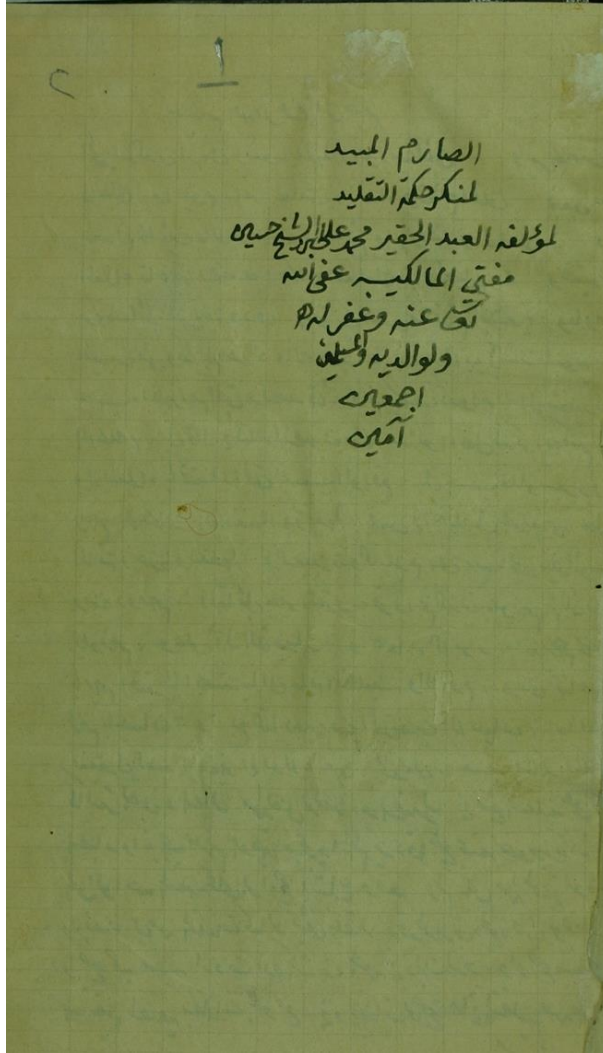 ١
الصارم المبيد
لمنكر حكمة التقليد
لمؤلفه العبد الحقير محمد علي ابن الشيخ حسين
مفتي المالكية عفى الله
تعالى عنه وغفر له
ولوالديه والمسلمين
اجمعين
آمين